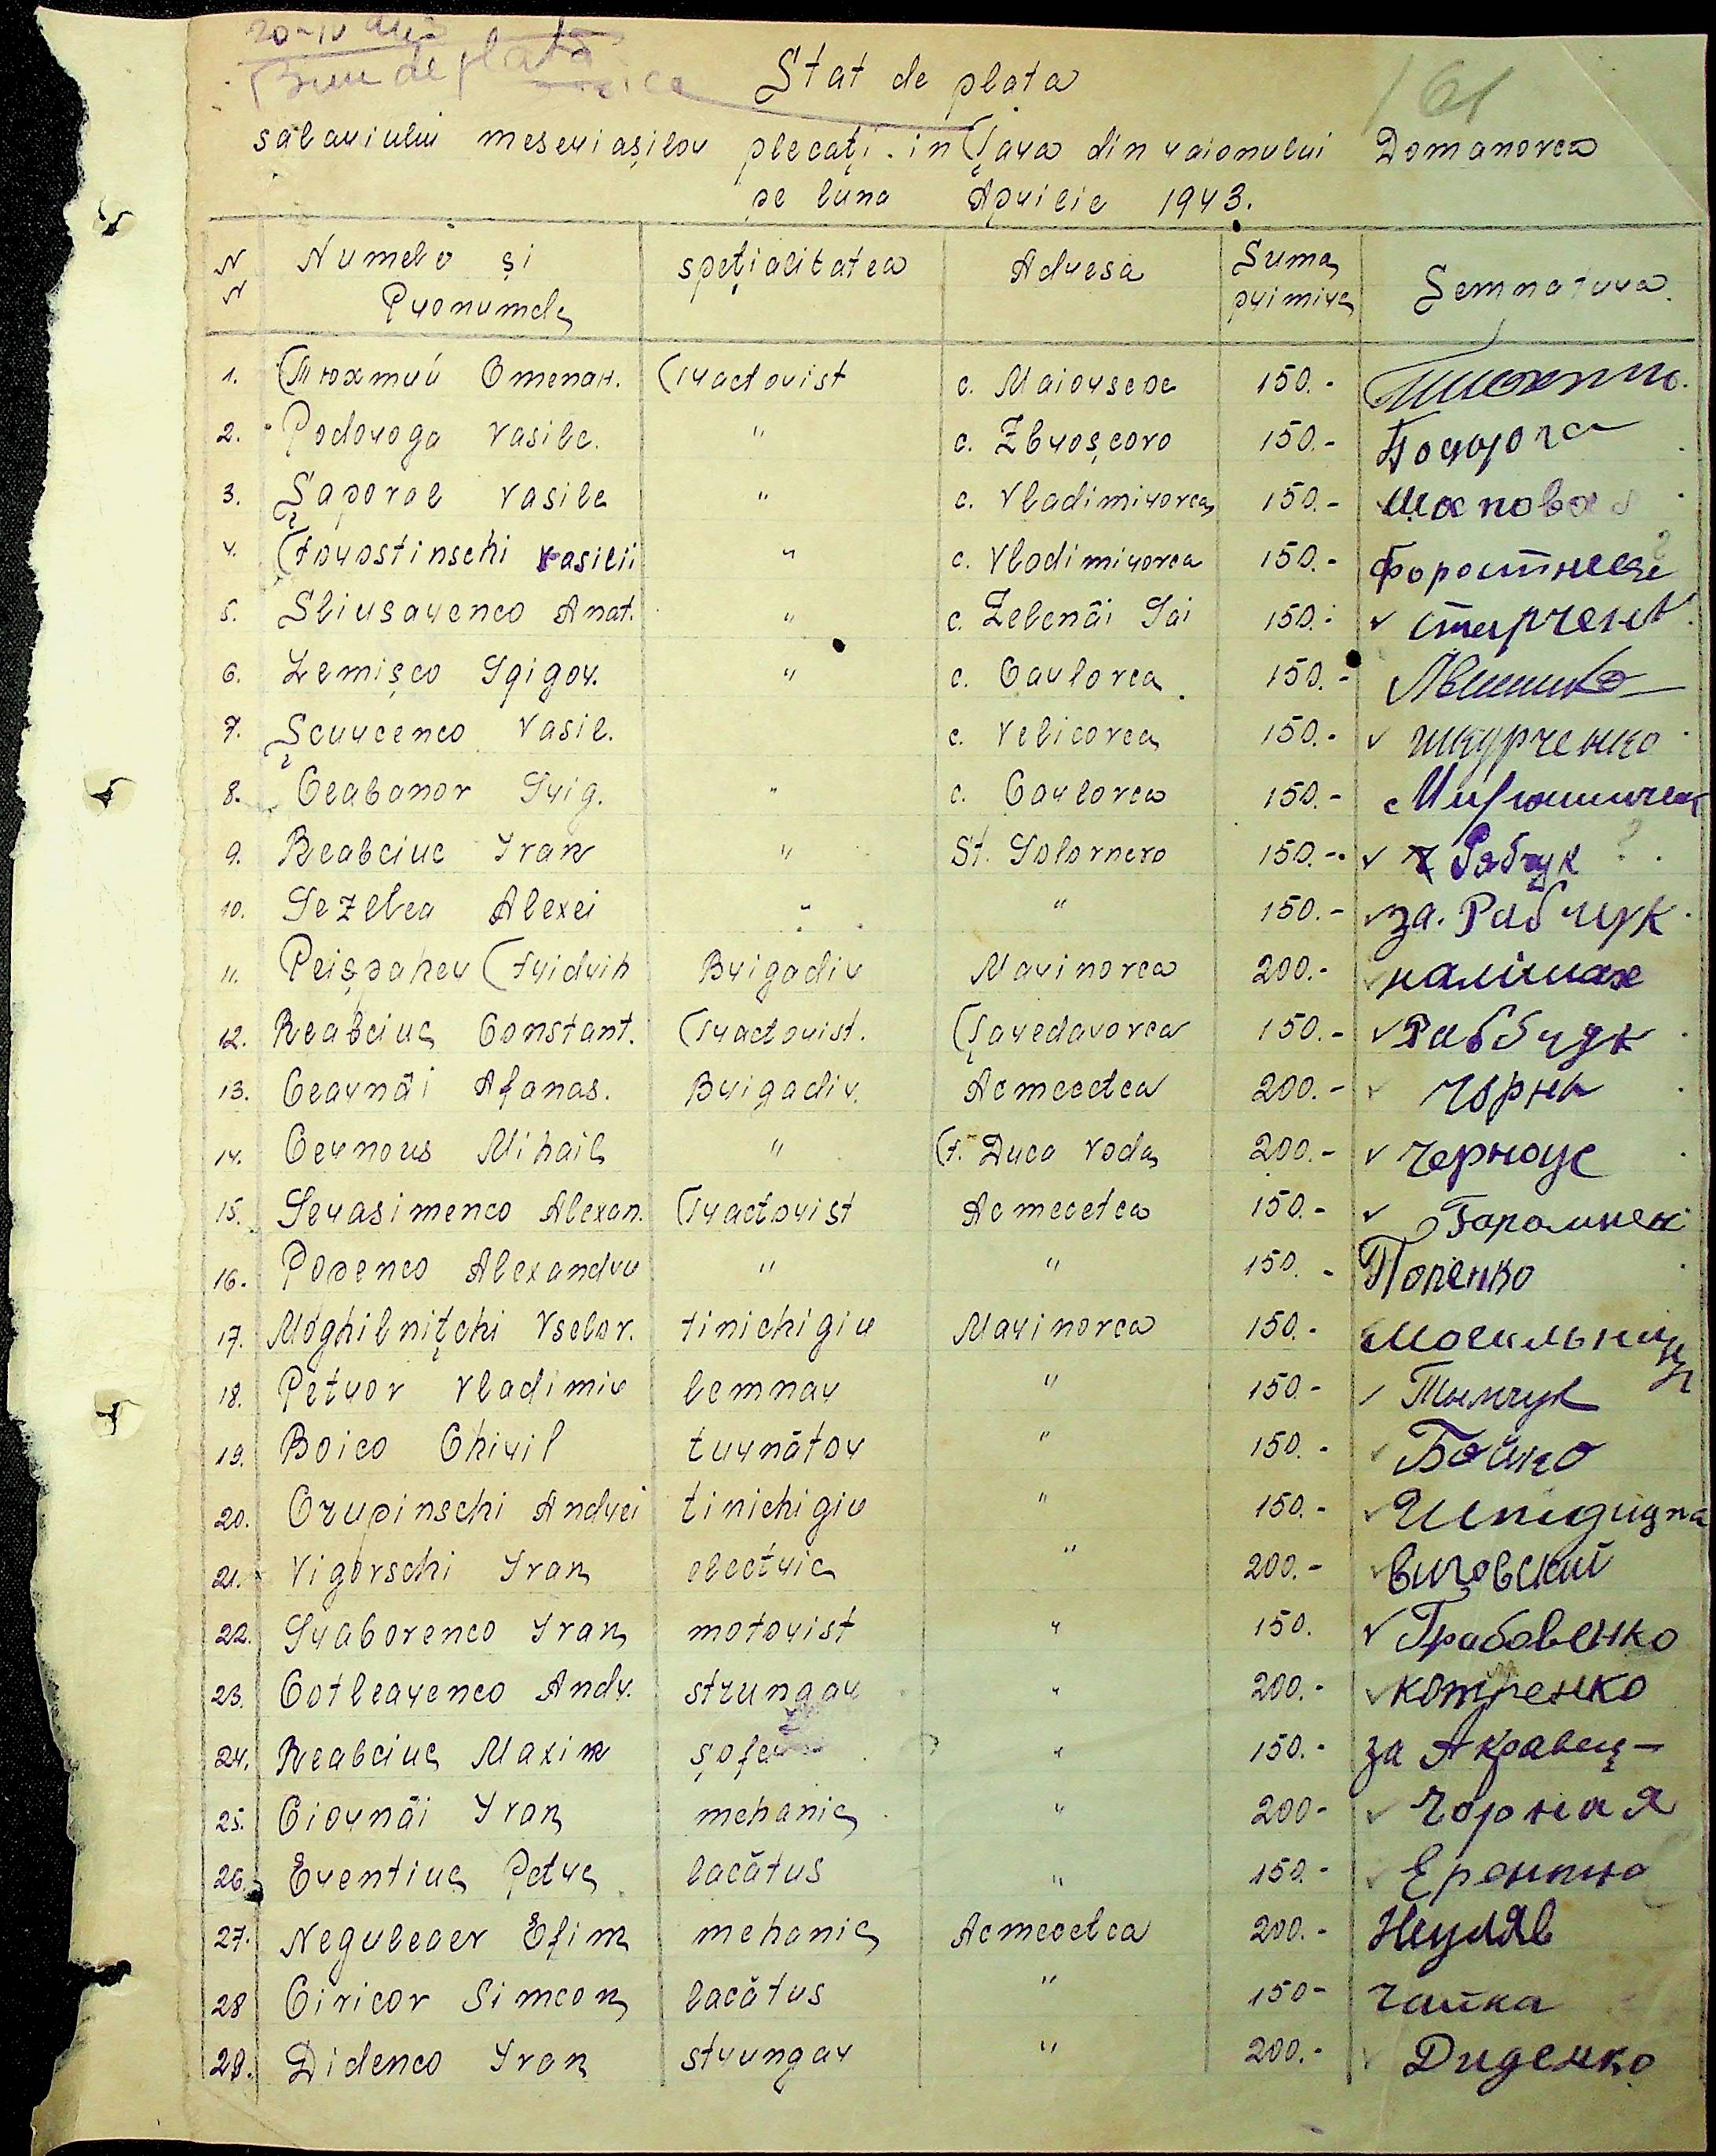 20-IV
Bun de plată
161
Stat de plata
salariului meseriașilor plecați in Țara din raionului Domanovca
pe luna Aprilie 1943.
N N Numele și Pronumele spețialitatea Adresa Suma primire Semnatura
1. Тюхтий Степан. Tractorist c. Maiorscoe 150.-
2. Podoroga Vasile. " c. Zbroșcovo 150.- Подорога
3. Șapoval Vasile " c. Vladimirovca 150.- Шаповал
4. Forostinschi Vasilii " c. Vladimirovca 150.-
5. Sliusarenco Anat. " c. Zelenâi Gai 150.-
6. Lemișco Grigor. " c. Cavlovca 150.-
7. Șcurcenco Vasil. c. Velicovca 150.- шкурченко
8. Ceabanov Grig. " c. Cavlovca 150.-
9. Reabciuc Ivan " St. Golovnevo 150.- Рябчук ?
10. Gezelea Alexei " " 150.- за. Рабчук
11. Reișpaher Fridrih Brigadir Marinovca 200.-
12. Reabciuc Constant. Tractorist. Țaredarovca 150.- Раббчук
13. Cearnâi Afanas. Brigadir. Acmecetca 200.- Чорни
14. Cernous Mihail " F. Duca Voda 200.- Черноус
15. Gerasimenco Alexan. Tractorist Acmecetca 150.-
16. Popenco Alexandru " " 150.- Попенко
17. Moghilnițchi Vselov. tinichigiu Marinovca 150.-
18. Petrov Vladimir lemnar " 150.- Тымчук
19. Boico Chiril turnător " 150.- Бойко
20. Crupinschi Andrei tinichigiu " 150.-
21. Vigovschi Ivan electric " 200.- Виговский
22. Grabovenco Ivan motorist " 150. Грабовенко
23. Cotlearenco Andr. strungar " 200.- котренко
24. Reabciuc Maxim șofer " 150.- за А кравец-
25. Ciornâi Ivan mehanic " 200- Чорная
26. Erentiuc Petre lacătus " 150.-
27. Neguleaev Efim mehanic Acmecetca 200.- Неуляв
28 Ciricov Simeon lacătus " 150- Чайка
29. Didenco Ivan strungar " 200.- Диденко